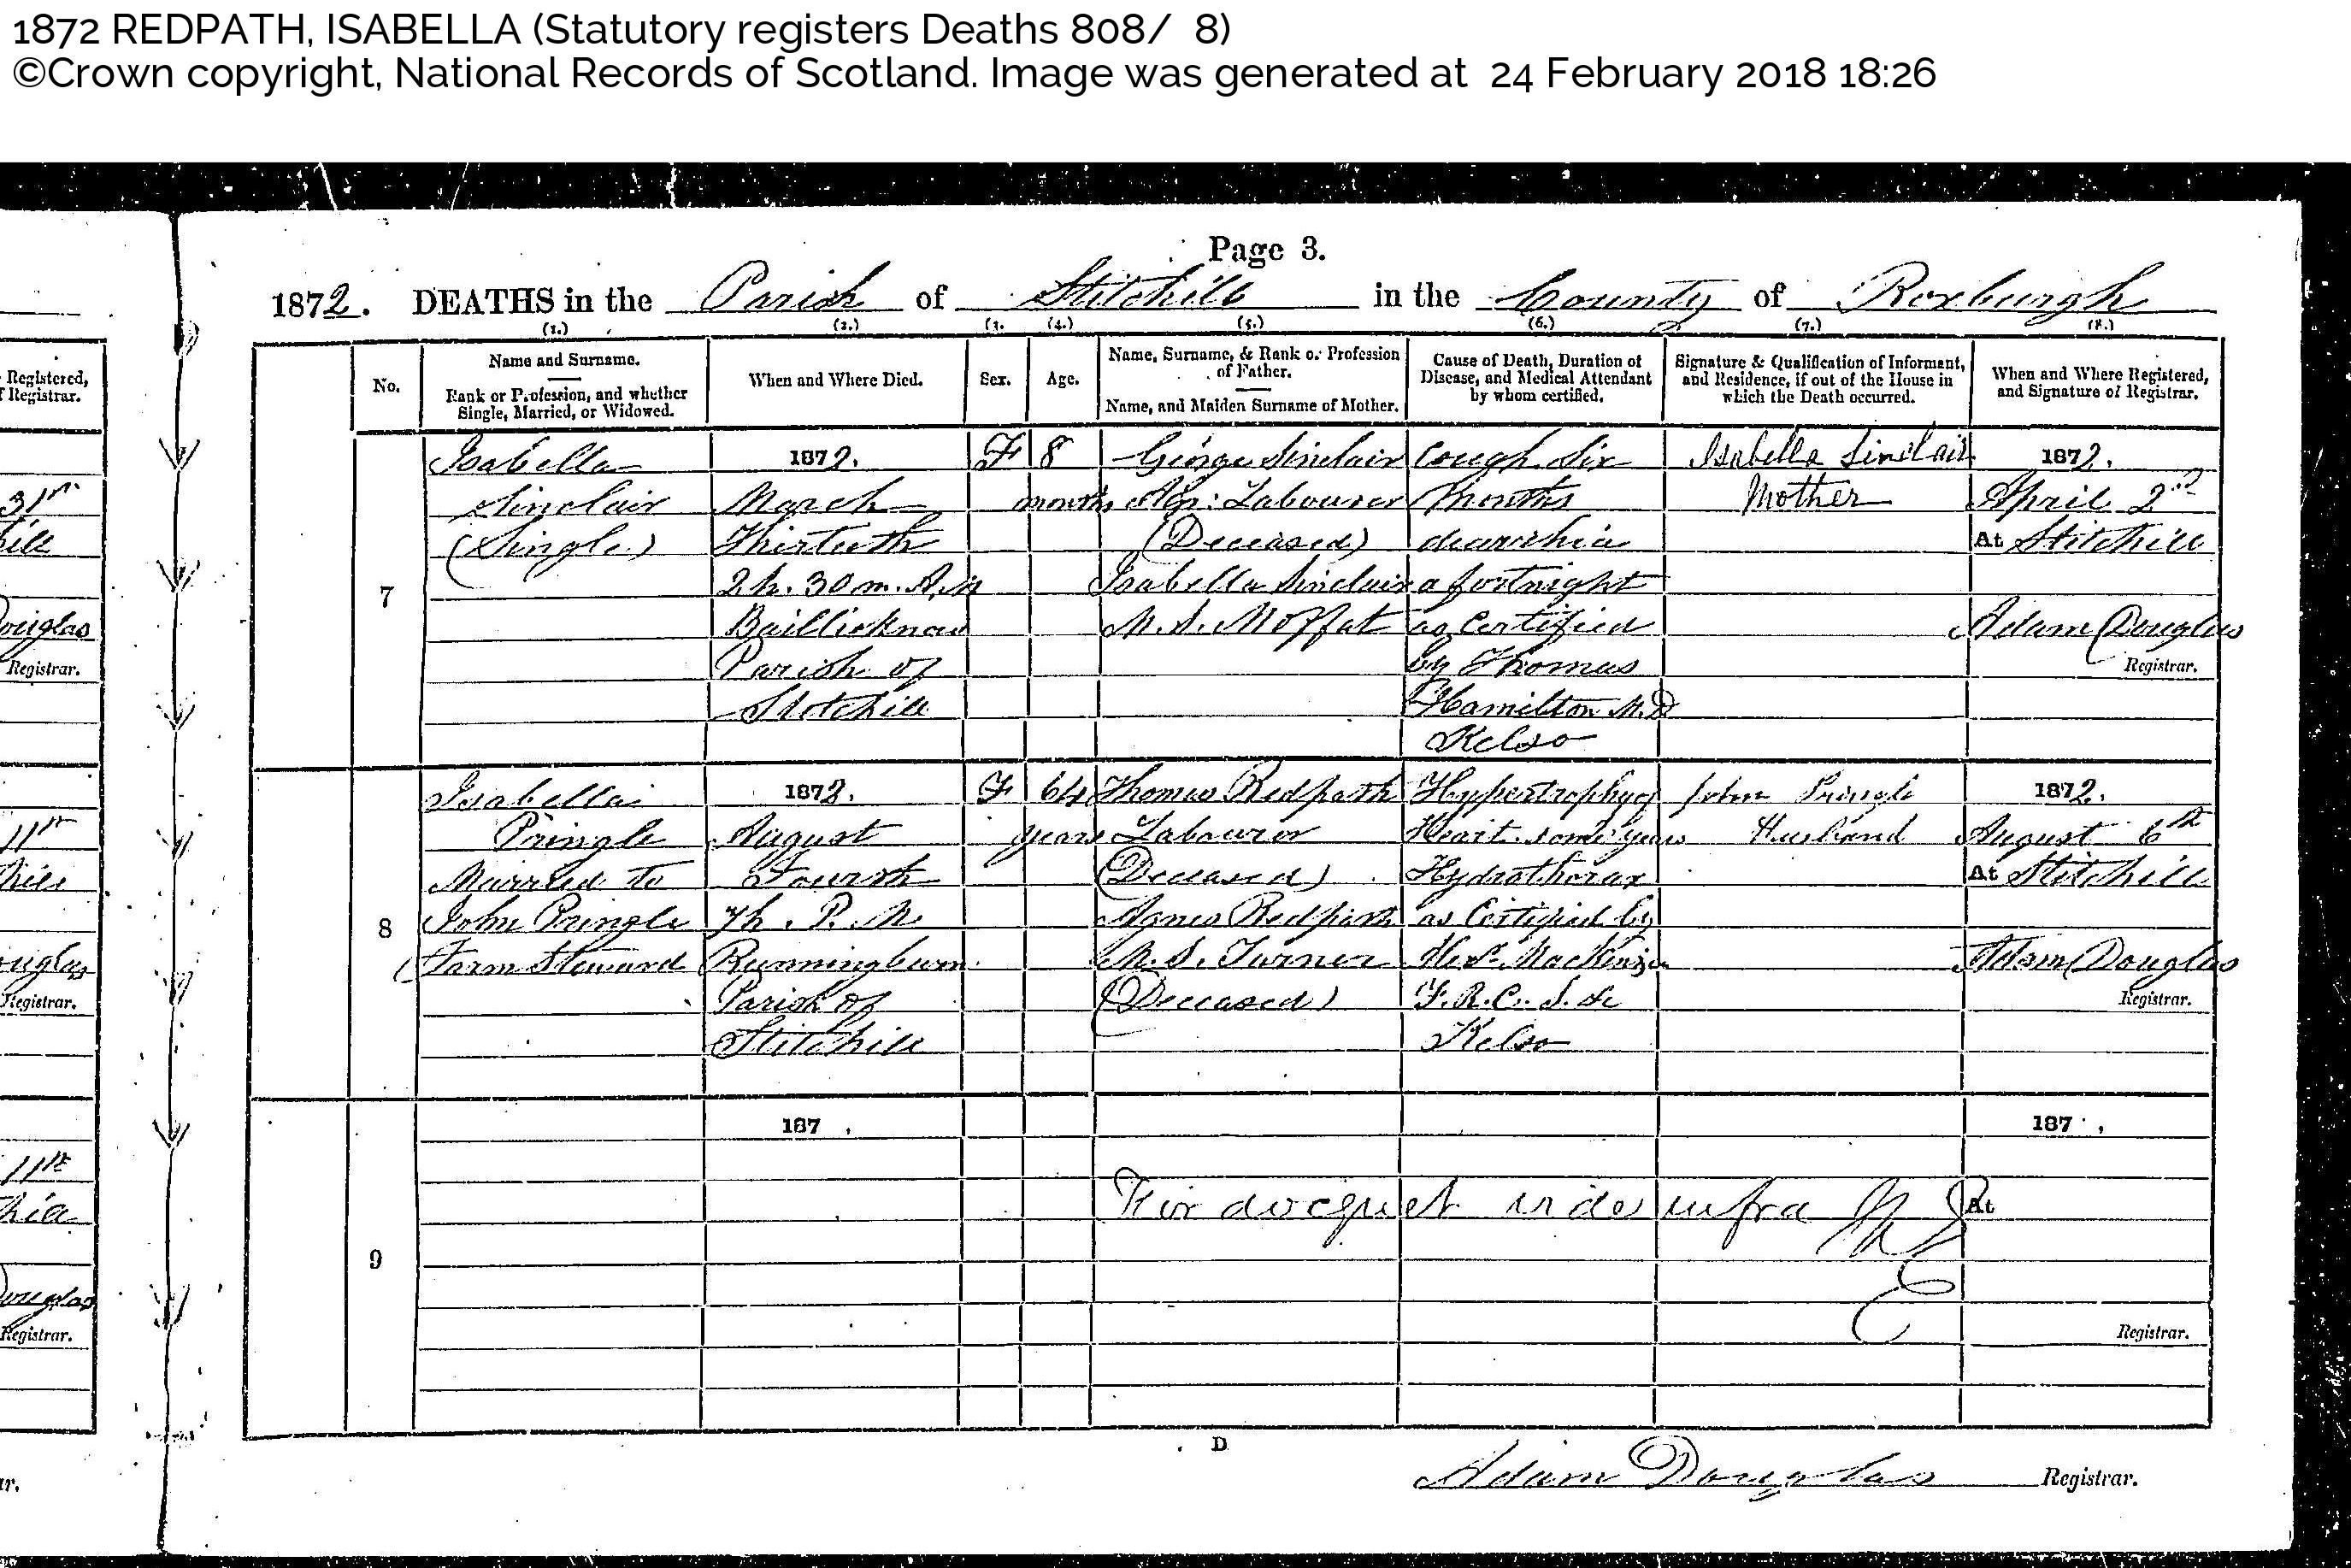 1872 REDPATH, ISABELLA (Statutory registers Deaths 808/ 8)
©Crown copyright, National Records of Scotland. Image was generated at 24 February 2018 18:26
Page 3.
1872. DEATHS in the Parish of Stitchill in the County of Roxburgh
(1.) (2.) (3. (4.) (5.) (6.) (7.) (8.)
No.
Name and Surname.
Rank or Profession, and whether
Single, Married, or Widowed.
When and Where Died.
Sex.
Age.
Name, Surname, & Rank or Profession
of Father.
Name, and Maiden Surname of Mother.
Cause of Death, Duration of
Disease, and Medical Attendant
by whom certified.
Signature & Qualification of Informant,
and Residence, if out of the House in
which the Death occurred.
When and Where Registered,
and Signature of Registrar.
Registered,
Registrar.
31st
Douglas
Registrar.
7
Isabella
Sinclair
(Single)
1872.
March
Thirteenth
2h. 30m. A.M
Baillieknow
Parish of
Stitchill
F
8
months
George Sinclair
Ag: Labourer
(Deceased)
Isabella Sinclair
M.S. Moffat
Cough Six
Months
diarrhia
a fortnight
as Certified
by Thomas
Hamilton M.D
Kelso
Isabella Sinclair
Mother
1872.
April 2nd
At Stitchill
Adam Douglas
Registrar.
11th
8
Isabella
Pringle
Married to
John Pringle
Farm Steward
1872.
August
Fourth
7h. P.M.
Runningburn
Parish of
Stitchill
F
64
years
Thomas Redpath
Labourer
(Deceased)
Agnes Redpath
M.S. Turner
(Deceased)
Hypertrophy of
Heart some years
Hydrothorax
as Certified by
Mackenzie
F.R.C.S. &c
Kelso
John Pringle
Husband
1872.
August 6th
At Stitchill
Adam Douglas
Registrar.
Registrar.
11th
Douglas
Registrar.
9
187 .
For docquet vide infra
187 .
At
Registrar.
D
Adam Douglas Registrar.